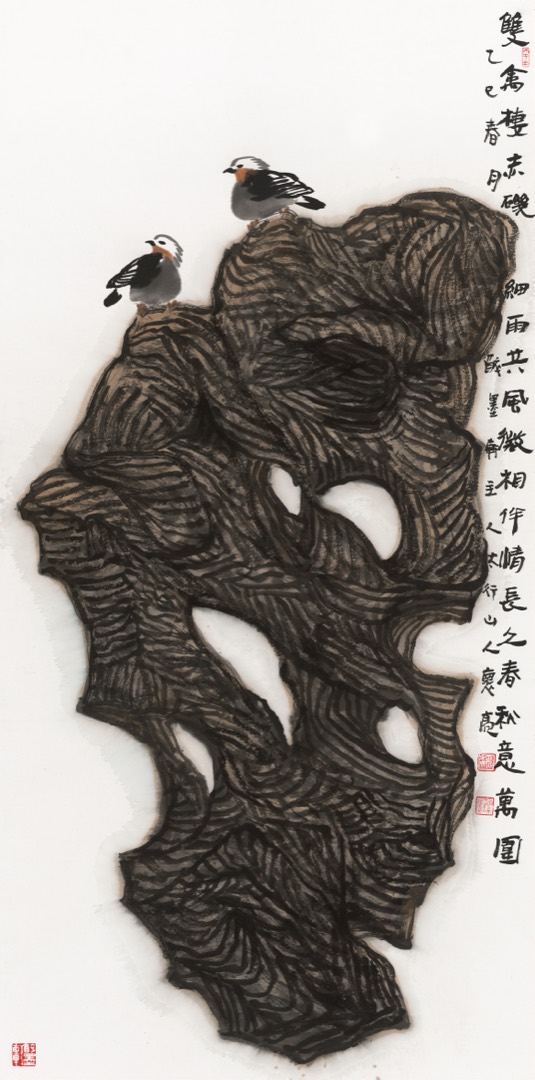 雙禽棲赤磯 細雨共風微相伴情長久春秋意萬圍
乙巳春月 醉墨軒主人太行山人裏亮